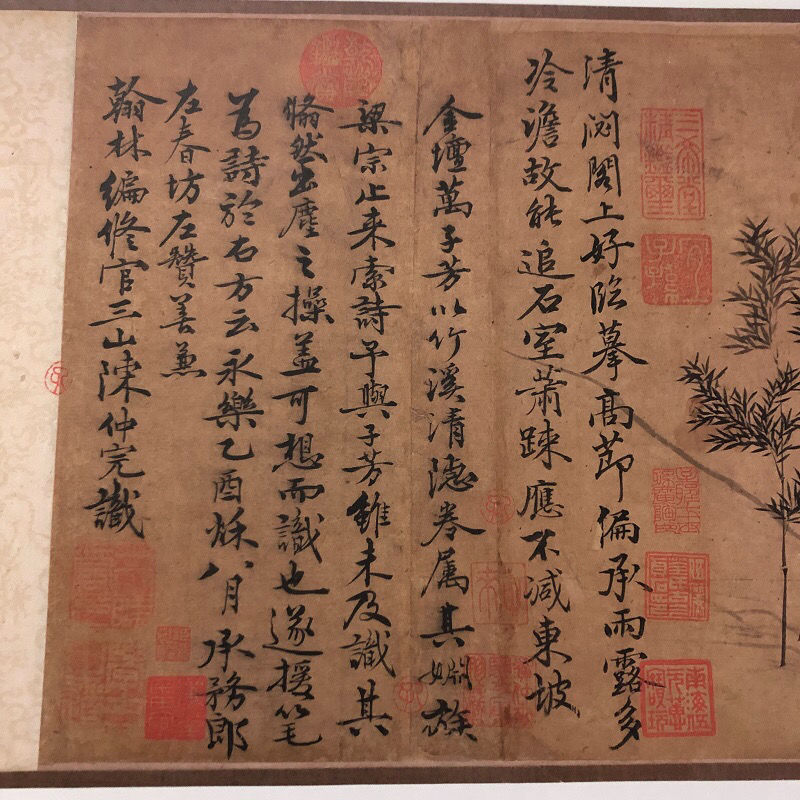 清閟閣上好臨摹高節偏承雨露多
冷澹故能追石室蕭踈應不減東坡
金壇萬子芳以竹溪清德卷属其婣族
梁宗止来索詩予與子芳雖未及識其
翛然出塵之操盖可想而識也遂援笔
為詩於右方云永樂乙酉秌八月承務郎
左春坊左贊善兼
翰林編修官三山陳仲完識